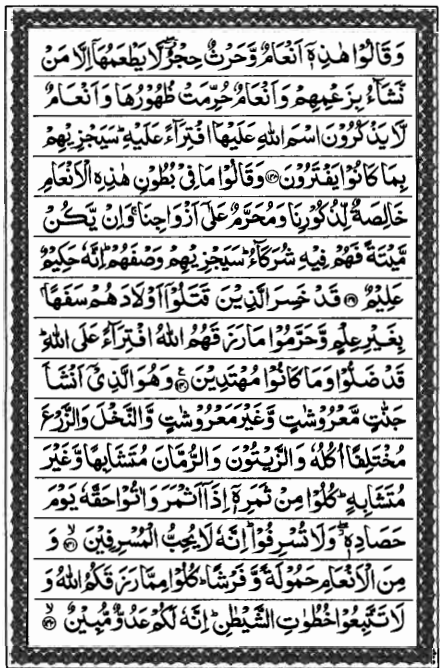 وَقَالُوْا هٰذِهٖۤ اَنْعَامٌ وَّحَرْثٌ حِجْرٌ ۖ لَّا يَطْعَمُهَاۤ اِلَّا مَنْ
نَّشَآءُ بِزَعْمِهِمْ وَاَنْعَامٌ حُرِّمَتْ ظُهُوْرُهَا وَاَنْعَامٌ
لَّا يَذْكُرُوْنَ اسْمَ اللّٰهِ عَلَيْهَا افْتِرَآءً عَلَيْهِ ؕ سَيَجْزِيْهِمْ
بِمَا كَانُوْا يَفْتَرُوْنَ ﴿۱۳۸﴾ وَقَالُوْا مَا فِيْ بُطُوْنِ هٰذِهِ الْاَنْعَامِ
خَالِصَةٌ لِّذُكُوْرِنَا وَمُحَرَّمٌ عَلٰۤى اَزْوَاجِنَا ۚ وَاِنْ يَّكُنْ
مَّيْتَةً فَهُمْ فِيْهِ شُرَكَآءُ ؕ سَيَجْزِيْهِمْ وَصْفَهُمْ ؕ اِنَّهٗ حَكِيْمٌ
عَلِيْمٌ ﴿۱۳۹﴾ قَدْ خَسِرَ الَّذِيْنَ قَتَلُوْۤا اَوْلَادَهُمْ سَفَهًاۢ
بِغَيْرِ عِلْمٍ وَّحَرَّمُوْا مَا رَزَقَهُمُ اللّٰهُ افْتِرَآءً عَلَى اللّٰهِ ؕ
قَدْ ضَلُّوْا وَمَا كَانُوْا مُهْتَدِيْنَ ﴿۱۴۰﴾ وَهُوَ الَّذِيْۤ اَنْشَاَ
جَنّٰتٍ مَّعْرُوْشٰتٍ وَّغَيْرَ مَعْرُوْشٰتٍ وَّالنَّخْلَ وَالزَّرْعَ
مُخْتَلِفًا اُكُلُهٗ وَالزَّيْتُوْنَ وَالرُّمَّانَ مُتَشَابِهًا وَّغَيْرَ
مُتَشَابِهٍ ؕ كُلُوْا مِنْ ثَمَرِهٖۤ اِذَاۤ اَثْمَرَ وَاٰتُوْا حَقَّهٗ يَوْمَ
حَصَادِهٖ ۖ وَلَا تُسْرِفُوْا ؕ اِنَّهٗ لَا يُحِبُّ الْمُسْرِفِيْنَ ﴿۱۴۱﴾ۙ وَ
مِنَ الْاَنْعَامِ حَمُوْلَةً وَّفَرْشًا ؕ كُلُوْا مِمَّا رَزَقَكُمُ اللّٰهُ وَ
لَا تَتَّبِعُوْا خُطُوٰتِ الشَّيْطٰنِ ؕ اِنَّهٗ لَكُمْ عَدُوٌّ مُّبِيْنٌ ﴿۱۴۲﴾ۙ